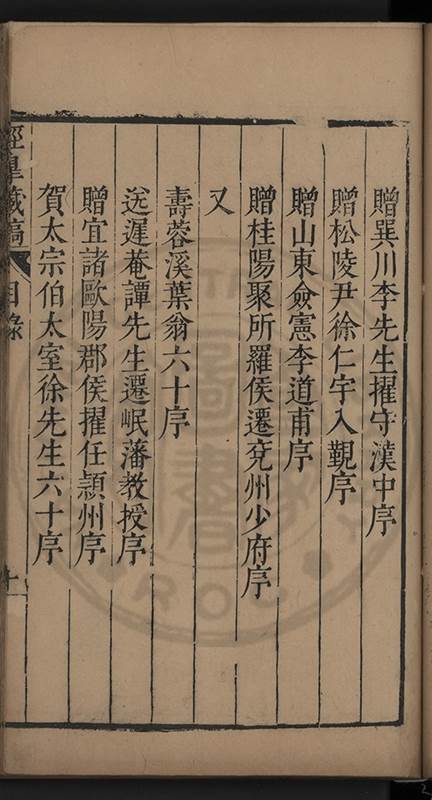 贈巽川李先生擢守漢中序
贈松陵尹徐仁宇入覲序
贈山東僉憲李道甫序
贈桂陽聚所羅侯遷兗州少府序
又
壽蓉溪葉翁六十序
送遲菴譚先生遷岷藩教授序
贈宜諸歐陽郡侯擢任潁州序
賀太宗伯太室徐先生六十序
涇臯藏稿 目錄